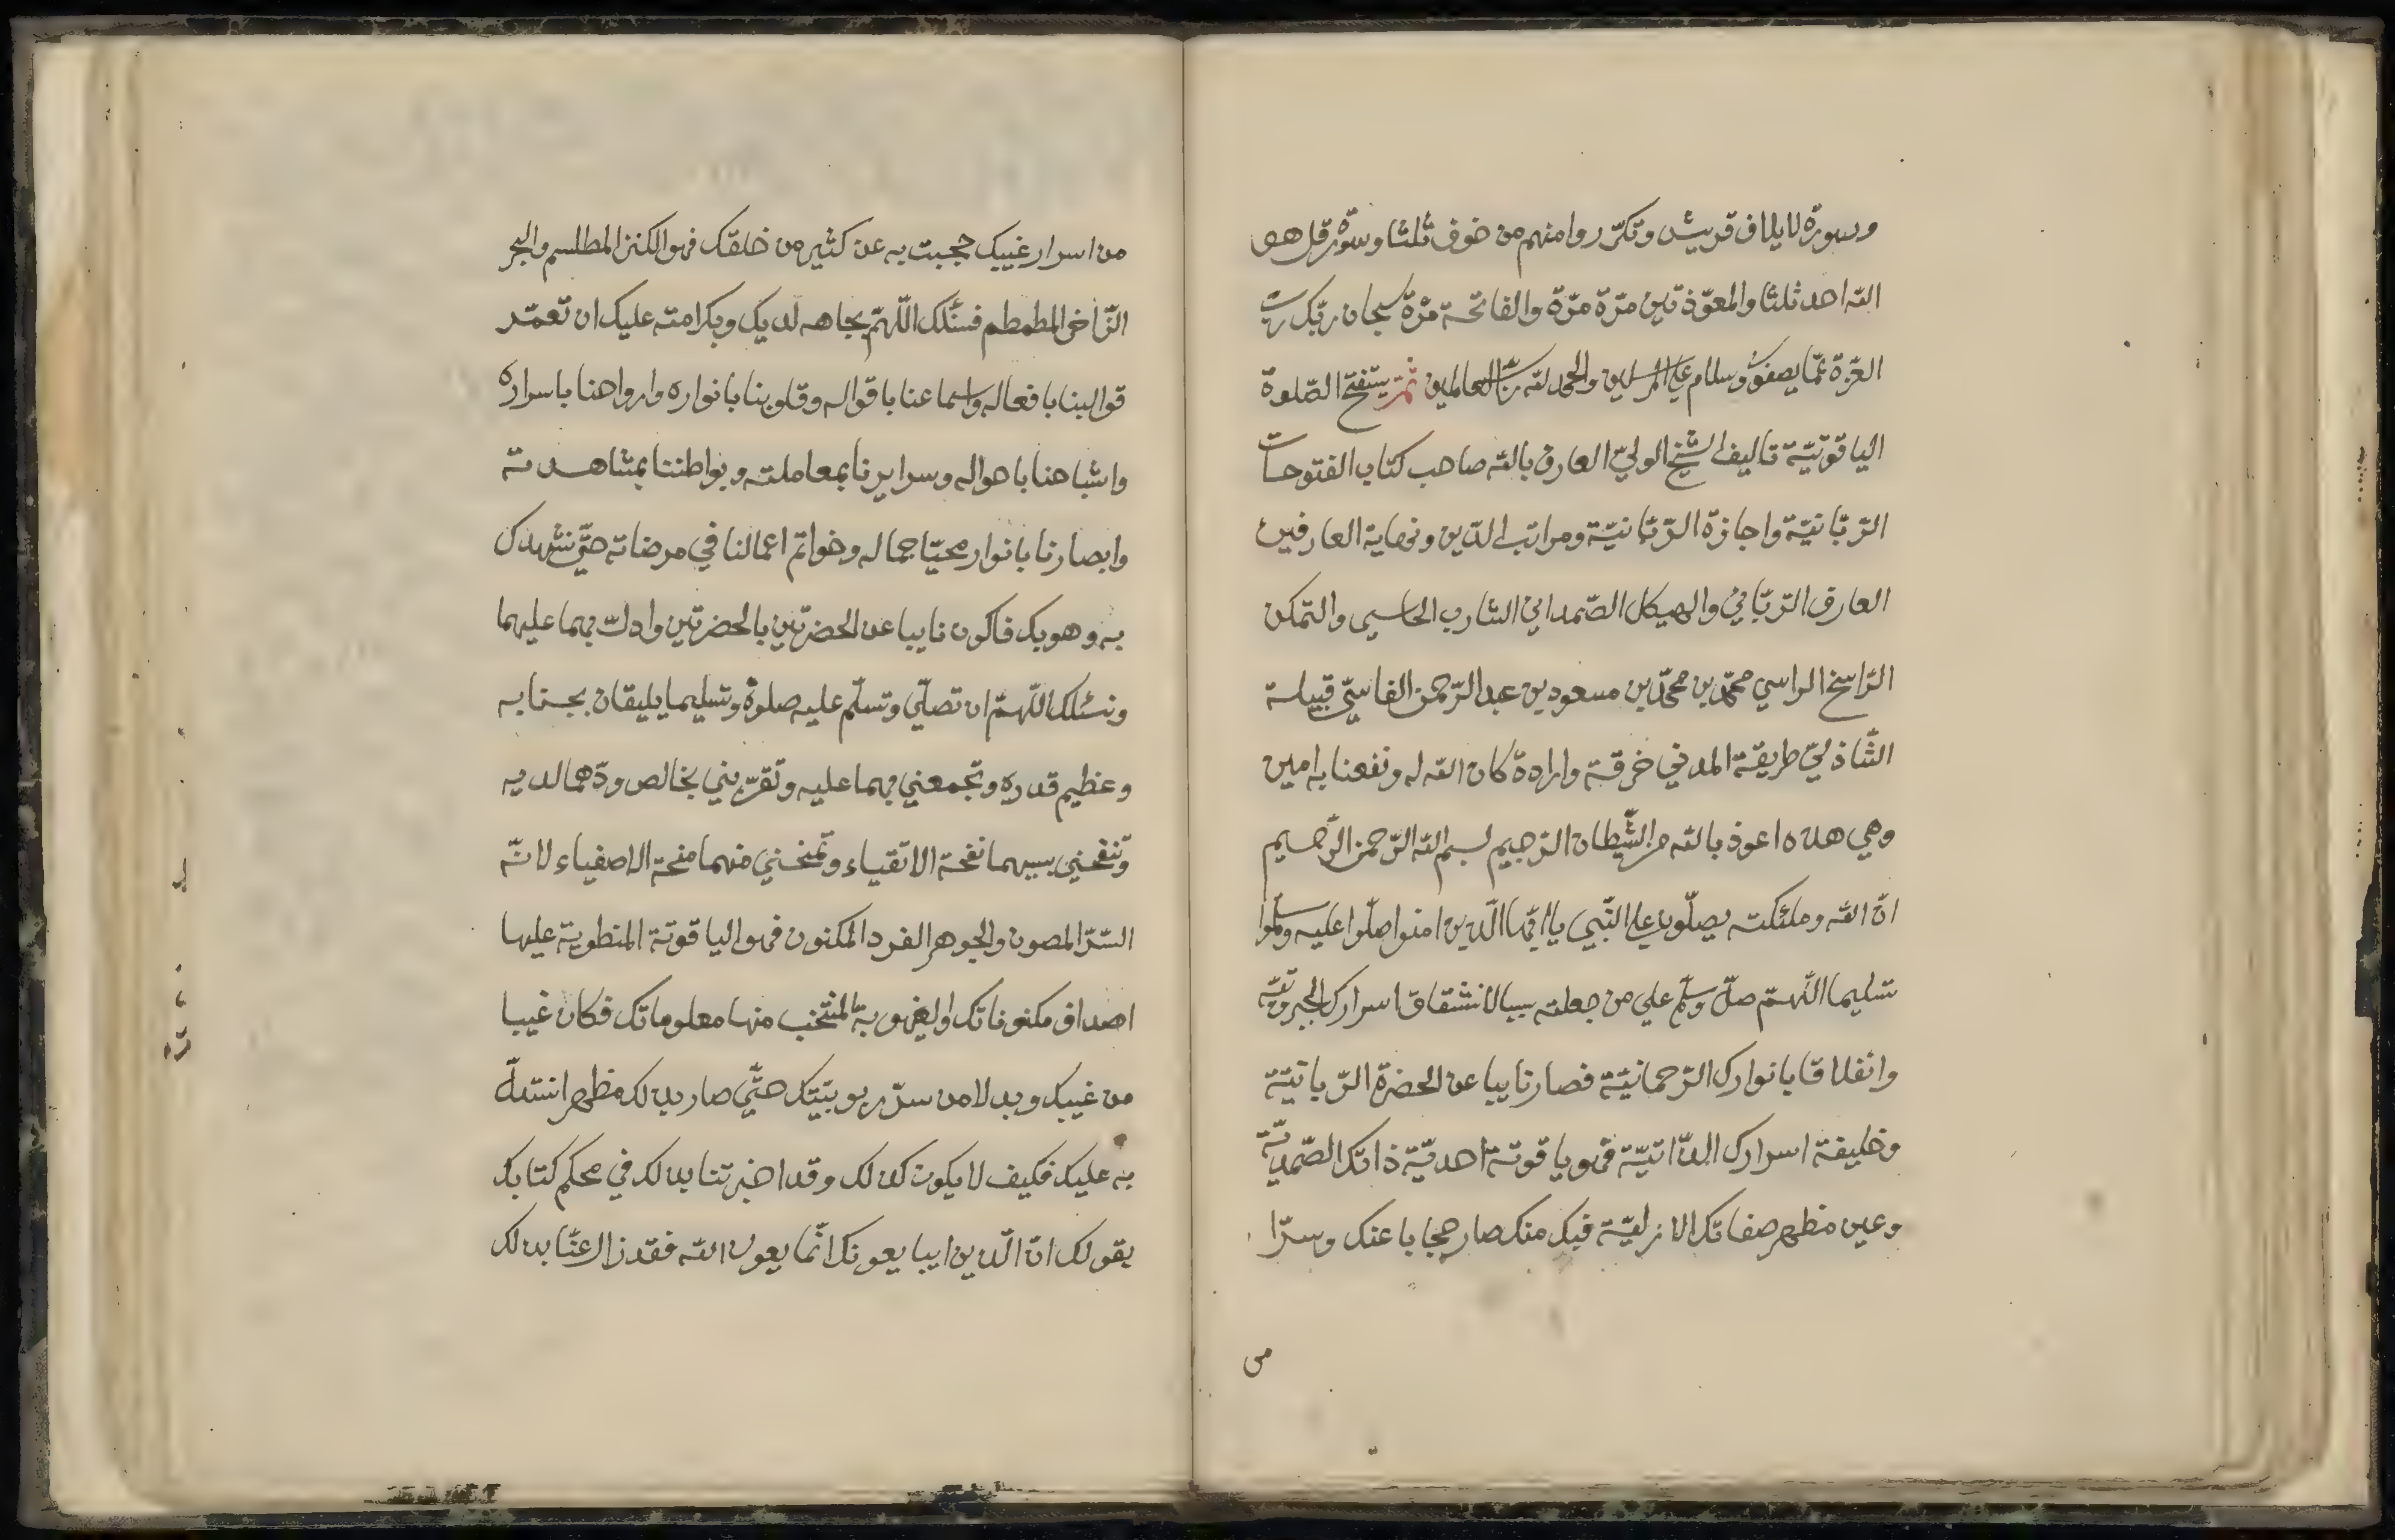 وسورة لايلاف قريش وتكرّر وامنهم من خوف ثلثا وسورة قل هو
الله احد ثلثا والمعوّذتين مرّة مرّة والفاتحة مرّة سبحان ربّك ربّ
العزّة عمّا يصفون وسلام على المرسلين والحمد لله ربّ العالمين ثمّ يستفتح الصّلوة
الياقوتيّة تاليف الشيخ الوليّ العارف بالله صاحب كتاب الفتوحات
الرّبّانيّة واجازة الرّبّانيّة ومراتب الدّين ونهاية العارفين
العارف الرّبّاني والهيكل الصّمداني الشارب الحاسي والتمكن
الرّاسخ الراسي محمّد بن محمّد بن مسعود بن عبد الرّحمن الفاسيّ قبيلة
الشّاذليّ طريقة المدني خرقة وارادة كان الله له ونفعنا به امين
وهي هذه اعوذ بالله من الشّيطان الرّجيم بسم الله الرّحمن الرّحيم
انّ الله وملئكته يصلّون على النّبي يا ايّها الّذين امنوا صلّوا عليه وسلّموا
تسليما اللّهمّ صلّ وسلّم على من جعلته سببا لانشقاق اسرارك الجبروتيّة
وانفلاقا بانوارك الرّحمانيّة فصار نايبا عن الحضرة الرّبانيّة
وخليفة اسرارك الذّاتيّة فهو ياقوتة احديّة ذاتك الصّمديّة
وعين مظهر صفاتك الازليّة فبك منك صار حجابا عنك وسرّا
من
من اسرار غيبك حجبت به عن كثير من خلقك فهو الكنز المطلسم والبحر
الزّاخر المطمطم فنسئلك اللّهمّ بجاهه لديك وبكرامته عليك ان تعمّر
قوالبنا بافعاله واسماعنا باقواله وقلوبنا بانواره وارواحنا باسراره
واشباحنا باحواله وسرايرنا بمعاملته وبواطننا بمشاهدته
وابصارنا بانوار محيّا جماله وخواتم اعمالنا في مرضاته حتّى نشهدك
به وهو بك فاكون نايبا عن الحضرتين بالحضرتين وادلّ بهما عليهما
ونسئلك اللّهمّ ان تصلّي وتسلّم عليه صلوة وتسليما يليقان بجنابه
وعظيم قدره وتجمعني بهما عليه وتقرّبني بخالص ودّهما لديه
وتنفحني بسببهما نفحة الاتقياء وتمنحني منهما منحة الاصفياء لانّه
السّرّ المصون والجوهر الفرد المكنون فهو الياقوتة المنطوية عليها
اصداف مكنوناتك والغيهوبة المنتخب منها معلوماتك فكان غيبا
من غيبك وبدلا من سرّ ربوبيّتك حتّى صار بذلك مظهرا نستدلّ
به عليك فكيف لا يكون كذلك وقد اخبرتنا بذلك في محكم كتابك
بقولك انّ الّذين ايبايعونك انّما يعون الله فقد زال عنّا بذلك